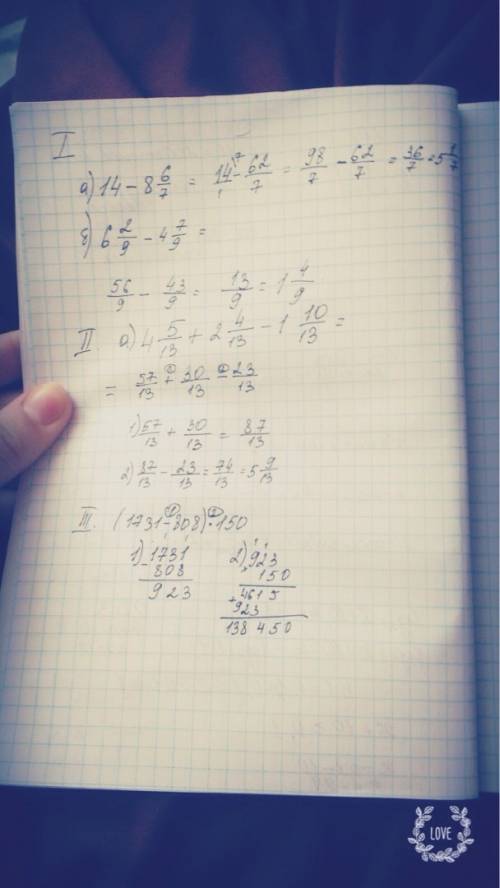 I
а) 14 - 8 6/7 = 14/1 \7 - 62/7 = 98/7 - 62/7 = 36/7 = 5 1/7
б) 6 2/9 - 4 7/9 =
56/9 - 43/9 = 13/9 = 1 4/9
II а) 4 5/13 + 2 4/13 - 1 10/13 =
= 57/13 + 30/13 - 23/13
1) 57/13 + 30/13 = 87/13
2) 87/13 - 23/13 = 74/13 = 5 9/13
III. (1731 - 808) · 150
1) 1731 2) 923
- 808 · 150
923 4615
+ 923
138 450
LOVE